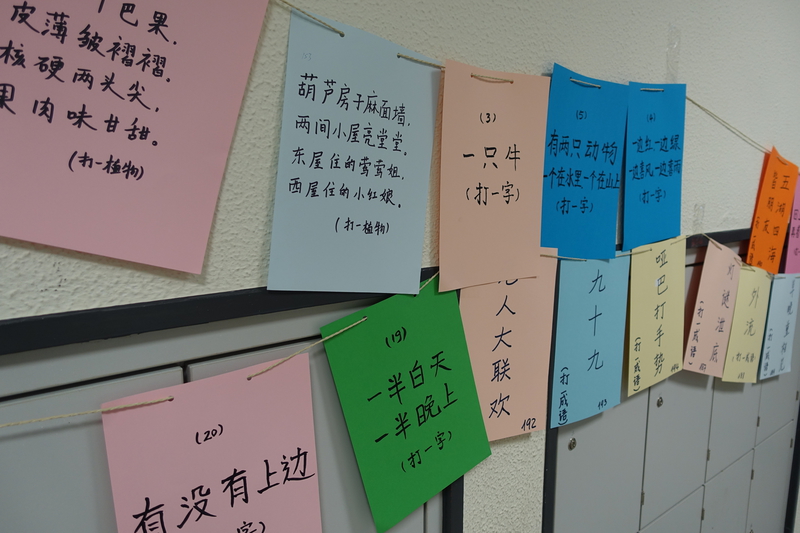 巴果.
皮薄皱褶褶.
核硬两头尖,
果肉味甘甜。
(打一植物)
葫芦房子麻面墙,
两间小屋亮堂堂.
东屋住的莺莺姐,
西屋住的小红娘.
(打一植物)
(3)
一只牛
(打一字)
(5)
有两只动物
一个在水里一个在山上
(打一字)
一边红,一边绿
一边喜风,一边喜雨
(打一字)
五湖四海
人大联欢
192
九十九
(打一成语)
193
哑巴打手势
(打一成语)
(打一成语)
外流
(打一成语)
(19)
一半白天
一半晚上
(打一字)
(20)
有没有上边
字)